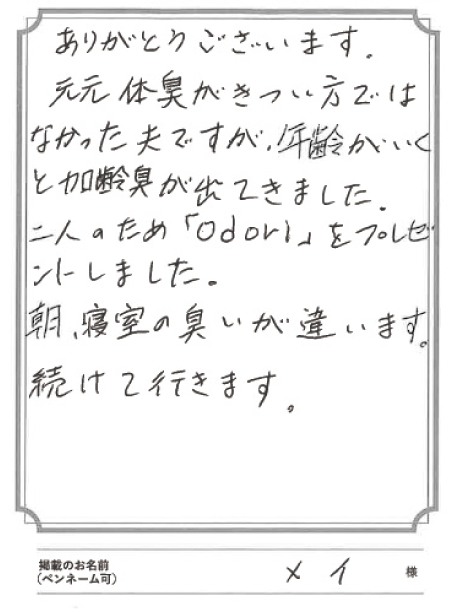 ありがとうございます.
元元体臭がきつい方では
なかった夫ですが、年齢がいく
と加齢臭が出てきました.
二人のため「Odori」をプレゼ
ントしました。
朝、寝室の臭いが違います。
続けて行きます。
掲載のお名前
(ペンネーム可)
メイ 様